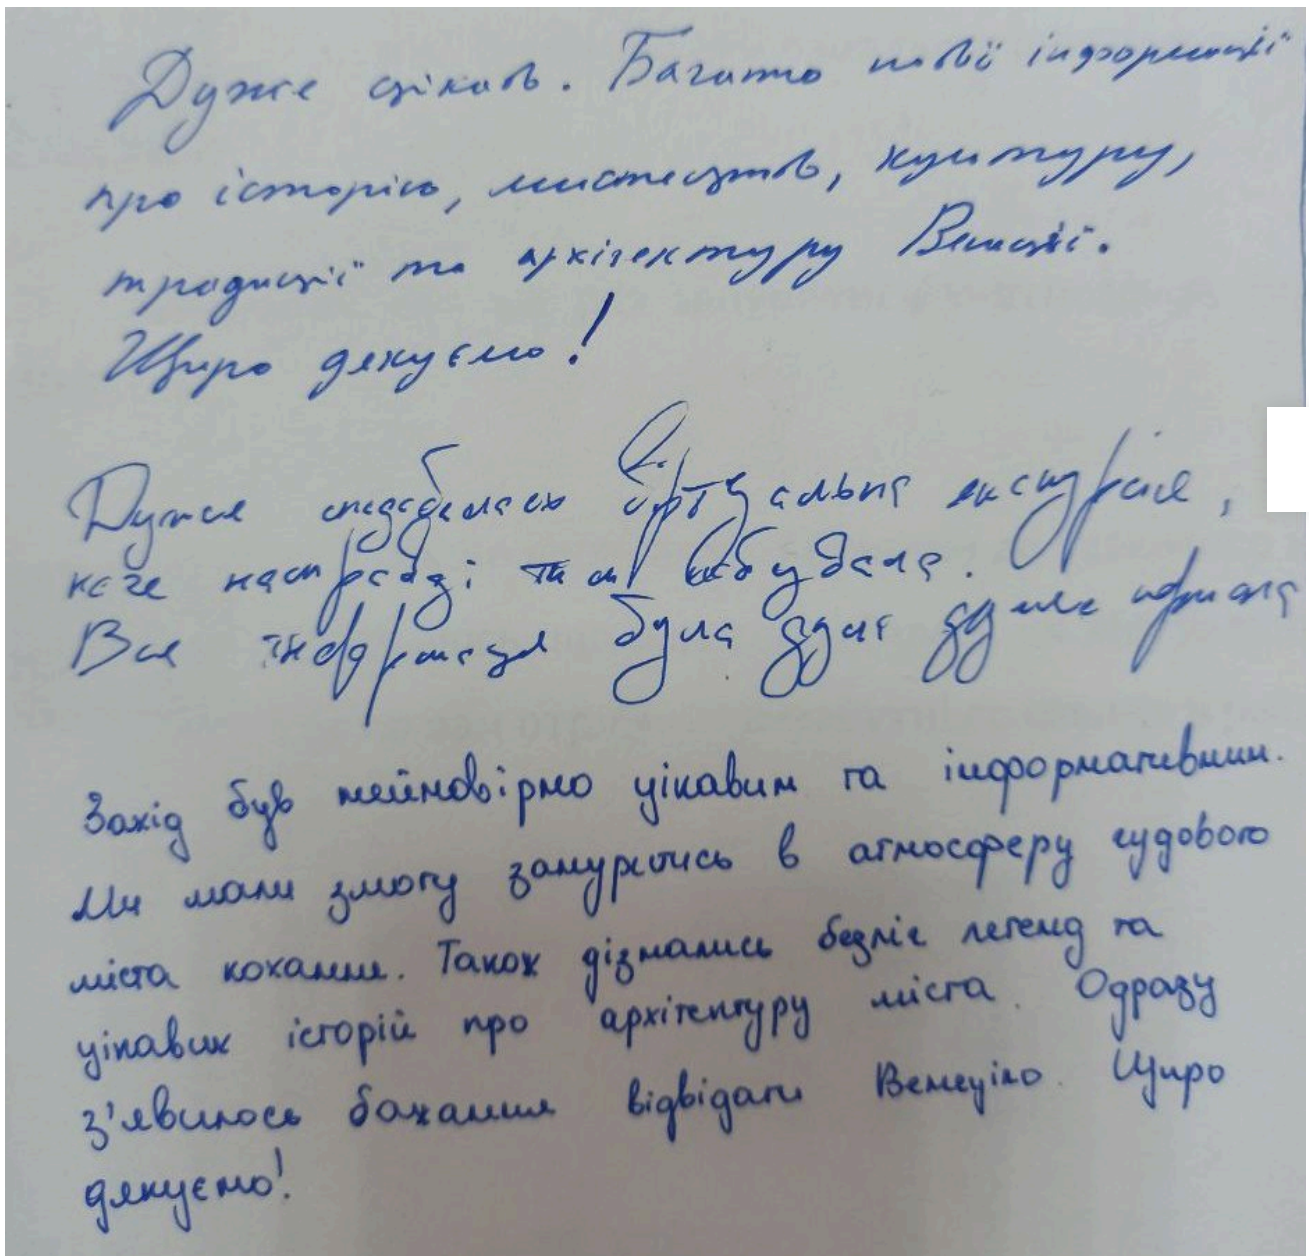 Дуже цікаво. Багато нової інформації
про історію, мистецтво, культуру,
традиції та архітектуру Венеції.
Щиро дякуємо!
Дуже сподобалась віртуальна екскурсія,
наче насправді там побувала.
Вся інформація була дуже дуже
Захід був неймовірно цікавим та інформативним.
Ми мали змогу зануритись в атмосферу чудового
міста кохання. Також дізнались безліч легенд та
цікавих історій про архітектуру міста. Одразу
з'явилось бажання відвідати Венецію. Щиро
дякуємо!